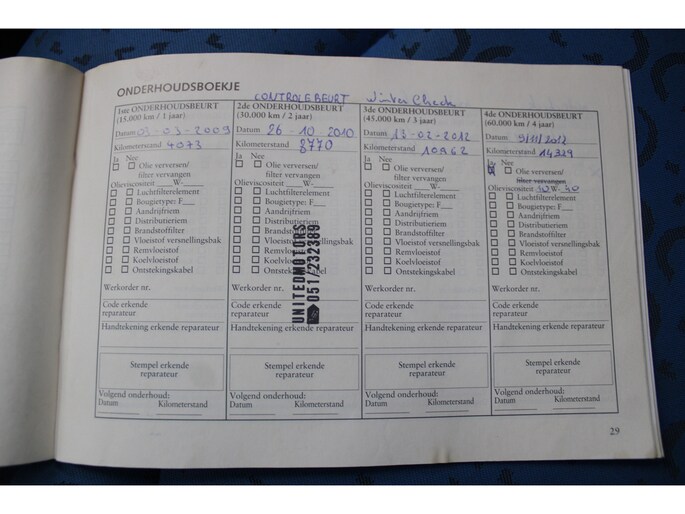 ONDERHOUDSBOEKJE
CONTROLE BEURT
Winter Check
1ste ONDERHOUDSBEURT
(15.000 km / 1 jaar)
Datum 03-03-2009
Kilometerstand 4073
Ja Nee
Olie verversen/
filter vervangen
Olieviscositeit W-
Luchtfilterelement
Bougietype: F
Aandrijfriem
Distributieriem
Brandstoffilter
Vloeistof versnellingsbak
Remvloeistof
Koelvloeistof
Ontstekingskabel
Werkorder nr.
Code erkende
reparateur
Handtekening erkende reparateur
Stempel erkende
reparateur
Volgend onderhoud:
Datum Kilometerstand
2de ONDERHOUDSBEURT
(30.000 km / 2 jaar)
Datum 26-10-2010
Kilometerstand 8770
Ja Nee
Olie verversen/
filter vervangen
Olieviscositeit W-
Luchtfilterelement
Bougietype: F
Aandrijfriem
Distributieriem
Brandstoffilter
Vloeistof versnellingsbak
Remvloeistof
Koelvloeistof
Ontstekingskabel
UNITEDMOTORS
051/232389
Werkorder nr.
Code erkende
reparateur
Handtekening erkende reparateur
Stempel erkende
reparateur
Volgend onderhoud:
Datum Kilometerstand
3de ONDERHOUDSBEURT
(45.000 km / 3 jaar)
Datum 13-02-2012
Kilometerstand 10962
Ja Nee
Olie verversen/
filter vervangen
Olieviscositeit W-
Luchtfilterelement
Bougietype: F
Aandrijfriem
Distributieriem
Brandstoffilter
Vloeistof versnellingsbak
Remvloeistof
Koelvloeistof
Ontstekingskabel
Werkorder nr.
Code erkende
reparateur
Handtekening erkende reparateur
Stempel erkende
reparateur
Volgend onderhoud:
Datum Kilometerstand
4de ONDERHOUDSBEURT
(60.000 km / 4 jaar)
Datum 9/11/2012
Kilometerstand 14319
Ja Nee
Olie verversen/
filter vervangen
Olieviscositeit 10W-40
Luchtfilterelement
Bougietype: F
Aandrijfriem
Distributieriem
Brandstoffilter
Vloeistof versnellingsbak
Remvloeistof
Koelvloeistof
Ontstekingskabel
Werkorder nr.
Code erkende
reparateur
Handtekening erkende reparateur
Stempel erkende
reparateur
Volgend onderhoud:
Datum Kilometerstand
29